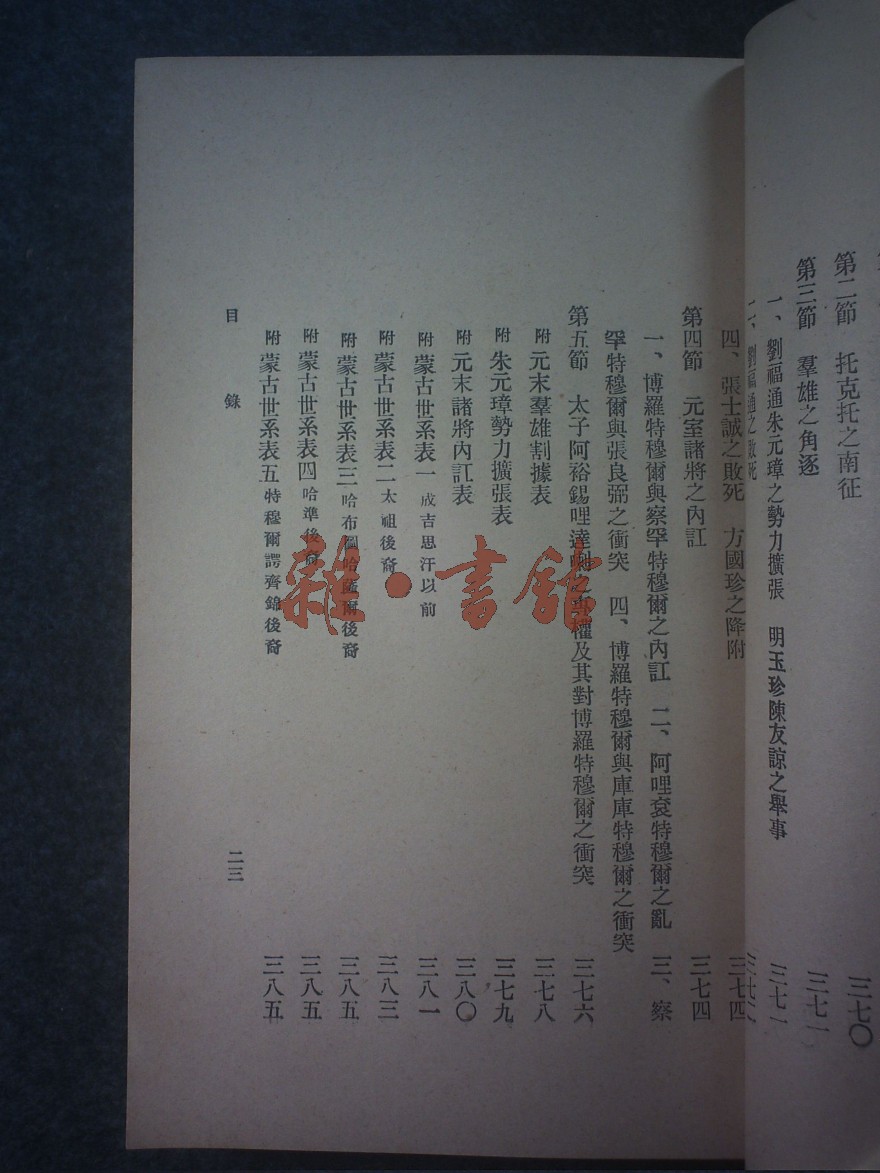 第二節　托克托之南征　三七〇
第三節　羣雄之角逐　三七一
一、劉福通朱元璋之勢力擴張　明玉珍陳友諒之舉事　三七一
四、張士誠之敗死　方國珍之降附　三七四
第四節　元室諸將之內訌　三七四
一、博羅特穆爾與察罕特穆爾之內訌　二、阿哩袞特穆爾之亂　三、察
罕特穆爾與張良弼之衝突　四、博羅特穆爾與庫庫特穆爾之衝突
第五節　太子阿裕錫哩達喇之專權及其對博羅特穆爾之衝突　三七六
附　元末羣雄割據表　三七八
附　朱元璋勢力擴張表　三七九
附　元末諸將內訌表　三八〇
附　蒙古世系表一　成吉思汗以前　三八一
附　蒙古世系表二　太祖後裔　三八三
附　蒙古世系表三　哈布圖哈薩爾後裔　三八五
附　蒙古世系表四　哈準後裔　三八五
附　蒙古世系表五　特穆爾諤齊錦後裔　三八五
目錄　二三
雜·書館